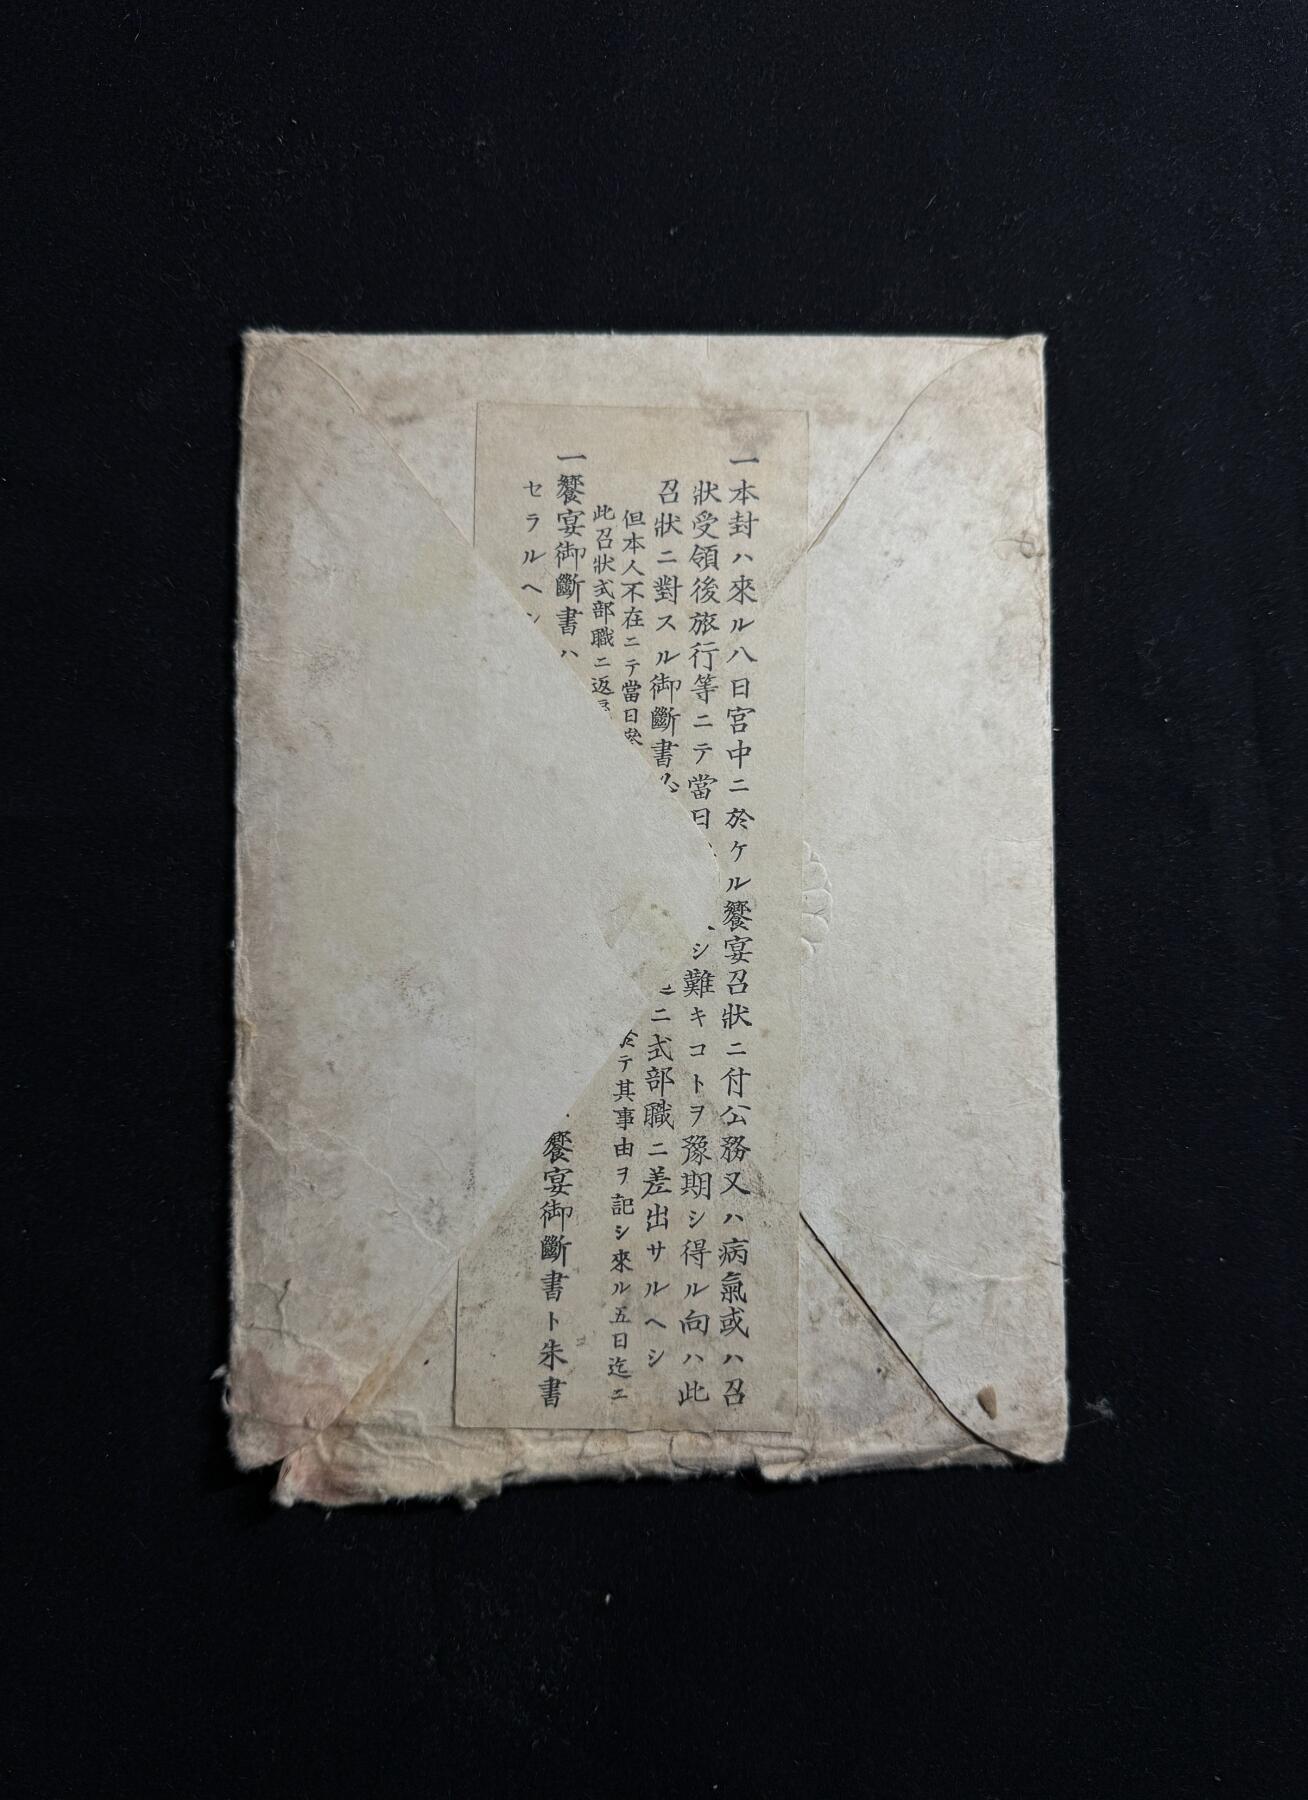 一本封ハ來ル八日宮中ニ於ケル饗宴召狀ニ付公務又ハ病氣或ハ召
狀受領後旅行等ニテ當日シ難キコトヲ豫期シ得ル向ハ此
召狀ニ對スル御斷書ニ式部職ニ差出サルヘシ
但本人不在ニテ當日テ其事由ヲ記シ來ル五日迄ニ
此召狀式部職ニ返
一饗宴御斷書ハ饗宴御斷書ト朱書
セラルヘシ